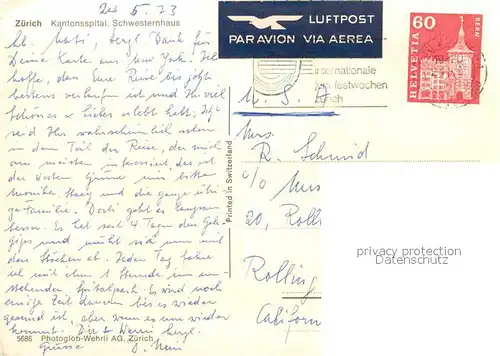 24 5. 73
Zürich Kantonsspital, Schwesternhaus
LUFTPOST
PAR AVION VIA AEREA
60
HELVETIA
BERN
internationale
festwochen
zürich
U. S. A.
Lb. herzl. Dank für
Deine Karte aus New York. Ich
hoffe, dass Eure Reise bis jetzt
bestens verlaufen ist und Ihr viel
Schönes erlebt habt. Jetzt
seid Ihr wahrscheinlich schon
in dem Teil der Reise, der mich
am meisten interessiert, das ist
der Westen. Grüsse mir bitte
und die ganze übri-
ge Familie. Dorli geht es langsam
besser. Es hat seit 4 Tagen den Geh-
gips und müht sich nun mit
den Stöcken ab. Jeden Tag
ich mit ihm 1 Stunde im um-
stehenden Spitalpark. Es wird noch
einige Zeit dauern bis es wieder
gesund ist, aber wenn es nur wieder
kommt. Dir & Werni herzl.
Grüsse
Mrs.
R. Schmid
c/o Mrs
20, Roll
Rolling
Californ
Printed in Switzerland
privacy protection
Datenschutz
5686 Photoglob-Wehrli AG, Zürich